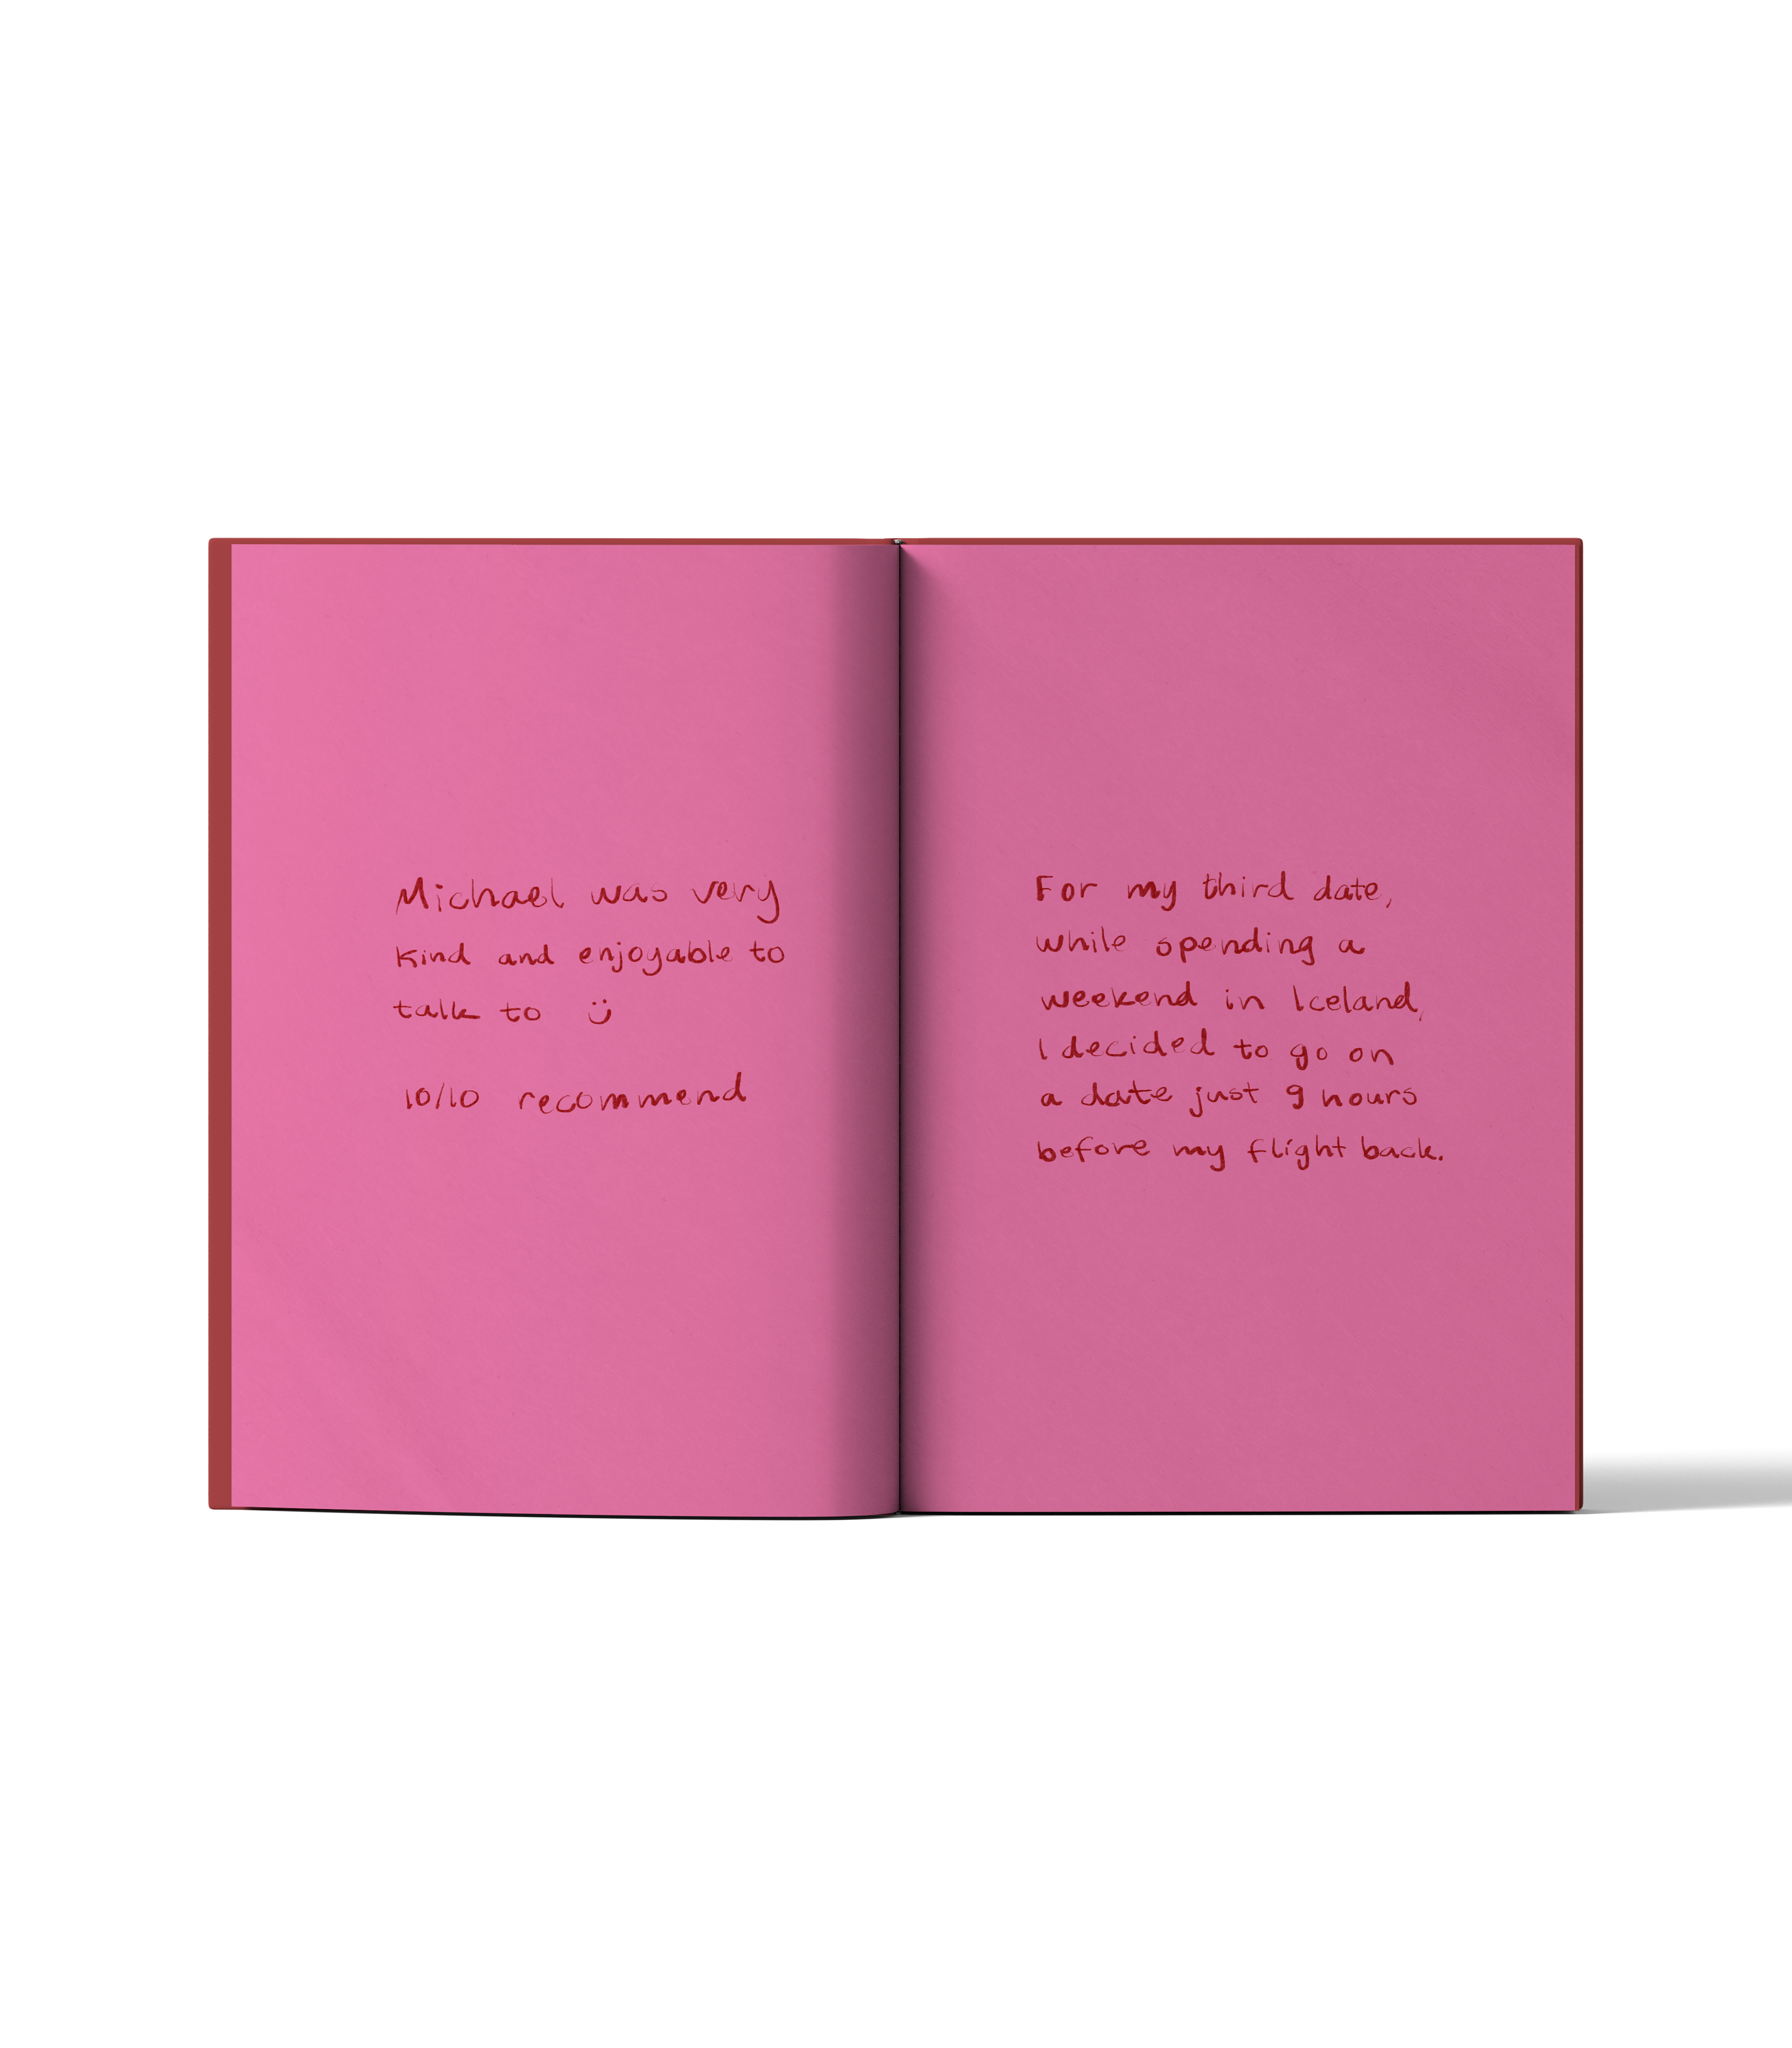 Michael was very
kind and enjoyable to
talk to :)
10/10 recommend
For my third date,
while spending a
weekend in Iceland,
I decided to go on
a date just 9 hours
before my flight back.